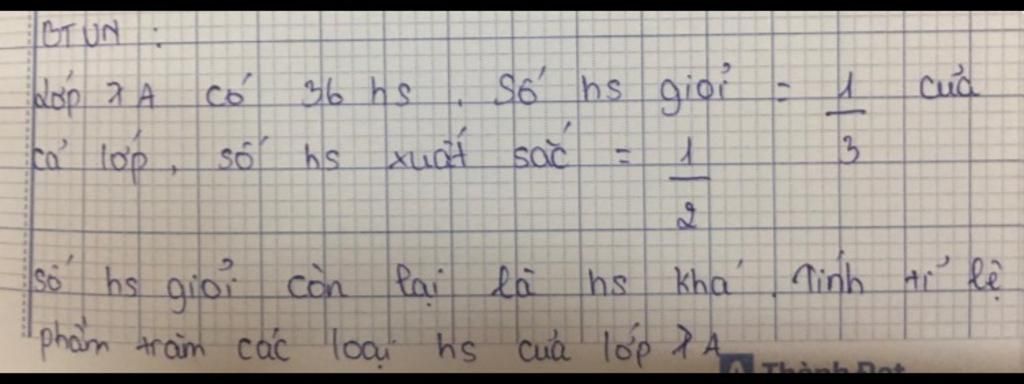 BTVN :
Lớp 7A có 36 hs. Số hs giỏi = 1/3 của
cả lớp, số hs xuất sắc = 1/2
số hs giỏi còn lại là hs khá. Tính tỉ lệ
phàm tràm các loại hs của lớp 7A
Thành Đạt